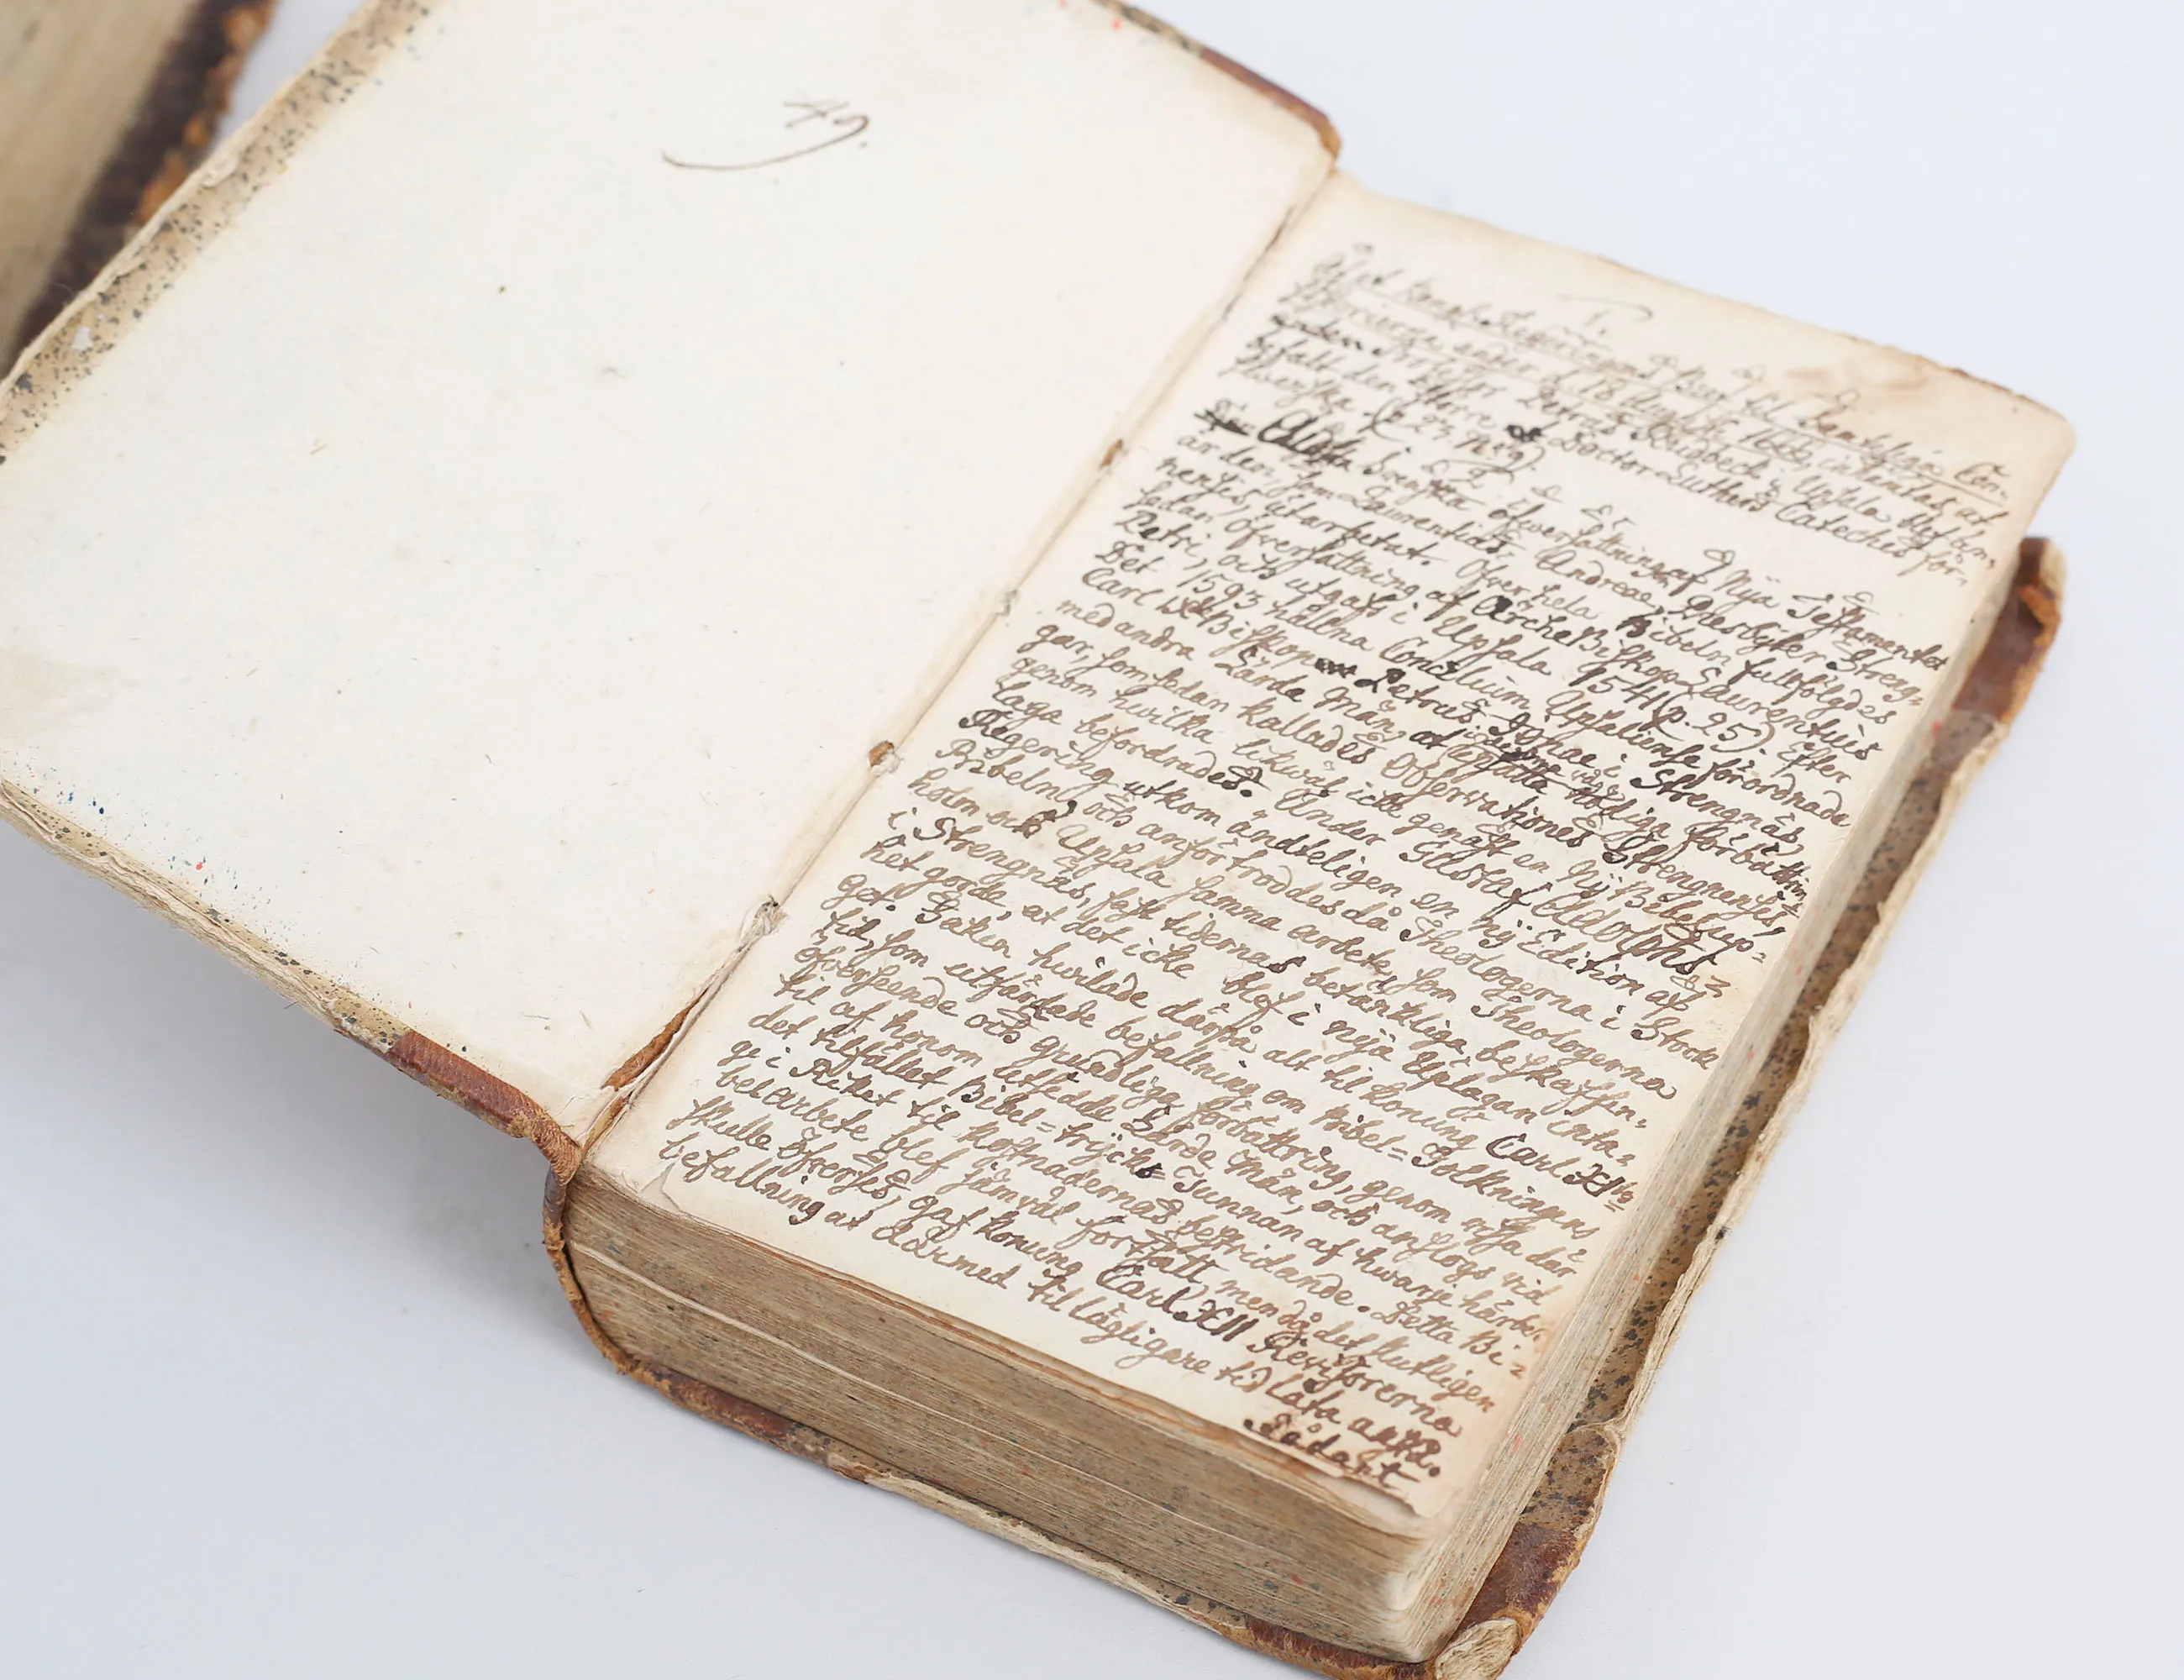 49.
1.
Uti Kongl. Regeringens Bref til
Sverige under d. 18 1666,
Professor Petrus Rudbeck i Upsala
befalt den Herre Doctor Luthers Catechis för-
p. 23 n. 29).
2.
Äldsta Svenska öfwersättning af Nÿa Testamentet
är den, som Laurentius Andreae, Presbyter Streng-
nensis, utarbetat. Öfver hela Bibeln fullfölgdes
sedan öfversättning af ArcheBiskop Laurentius
Petri, och utgafs i Upsala 1541 (p. 25). Efter
Det 1593 hållna Concilium Upsaliense förordnade
Carl IX Biskop Petrus Jonae i Strengnäs,
med andra Lärda Män, at nödiga förbättrin-
gar, som sedan kallades Observationes Strengnenses,
genom hwilka likwäl icke genast en Nÿ Bibel up-
laga befordrades. Under Gustaf Adolphs
Regering utkom ändteligen en nÿ Edition af
Bibeln, och anförtroddes då Theologerna i Stock-
holm och Upsala samma arbete, som Theologerna
i Strengnäs, fast tidernas betänkliga beskaffen-
het gorde at det icke blef i nÿa Uplagan inta-
get. Saken hwilade därpå alt til Konung Carl XI
tid, som utfärdade befallning om Bibel-Tolkningens
öfverseende och grundliga förbättring, genom wissa där
til af honom utsedde Lärde Män, och anslogs vid
det tilfället Bibel-trÿcks Tunnan af hwarje härber-
ge i Riket til Kostnadernas bestridande. Detta Bi-
belarbete blef jämväl fortsatt men då det slutligen
skulle öfverses, gaf Konung Carl XII Revisorerna
befallning at därmed til lägligare tid låta anstå.
Sådant